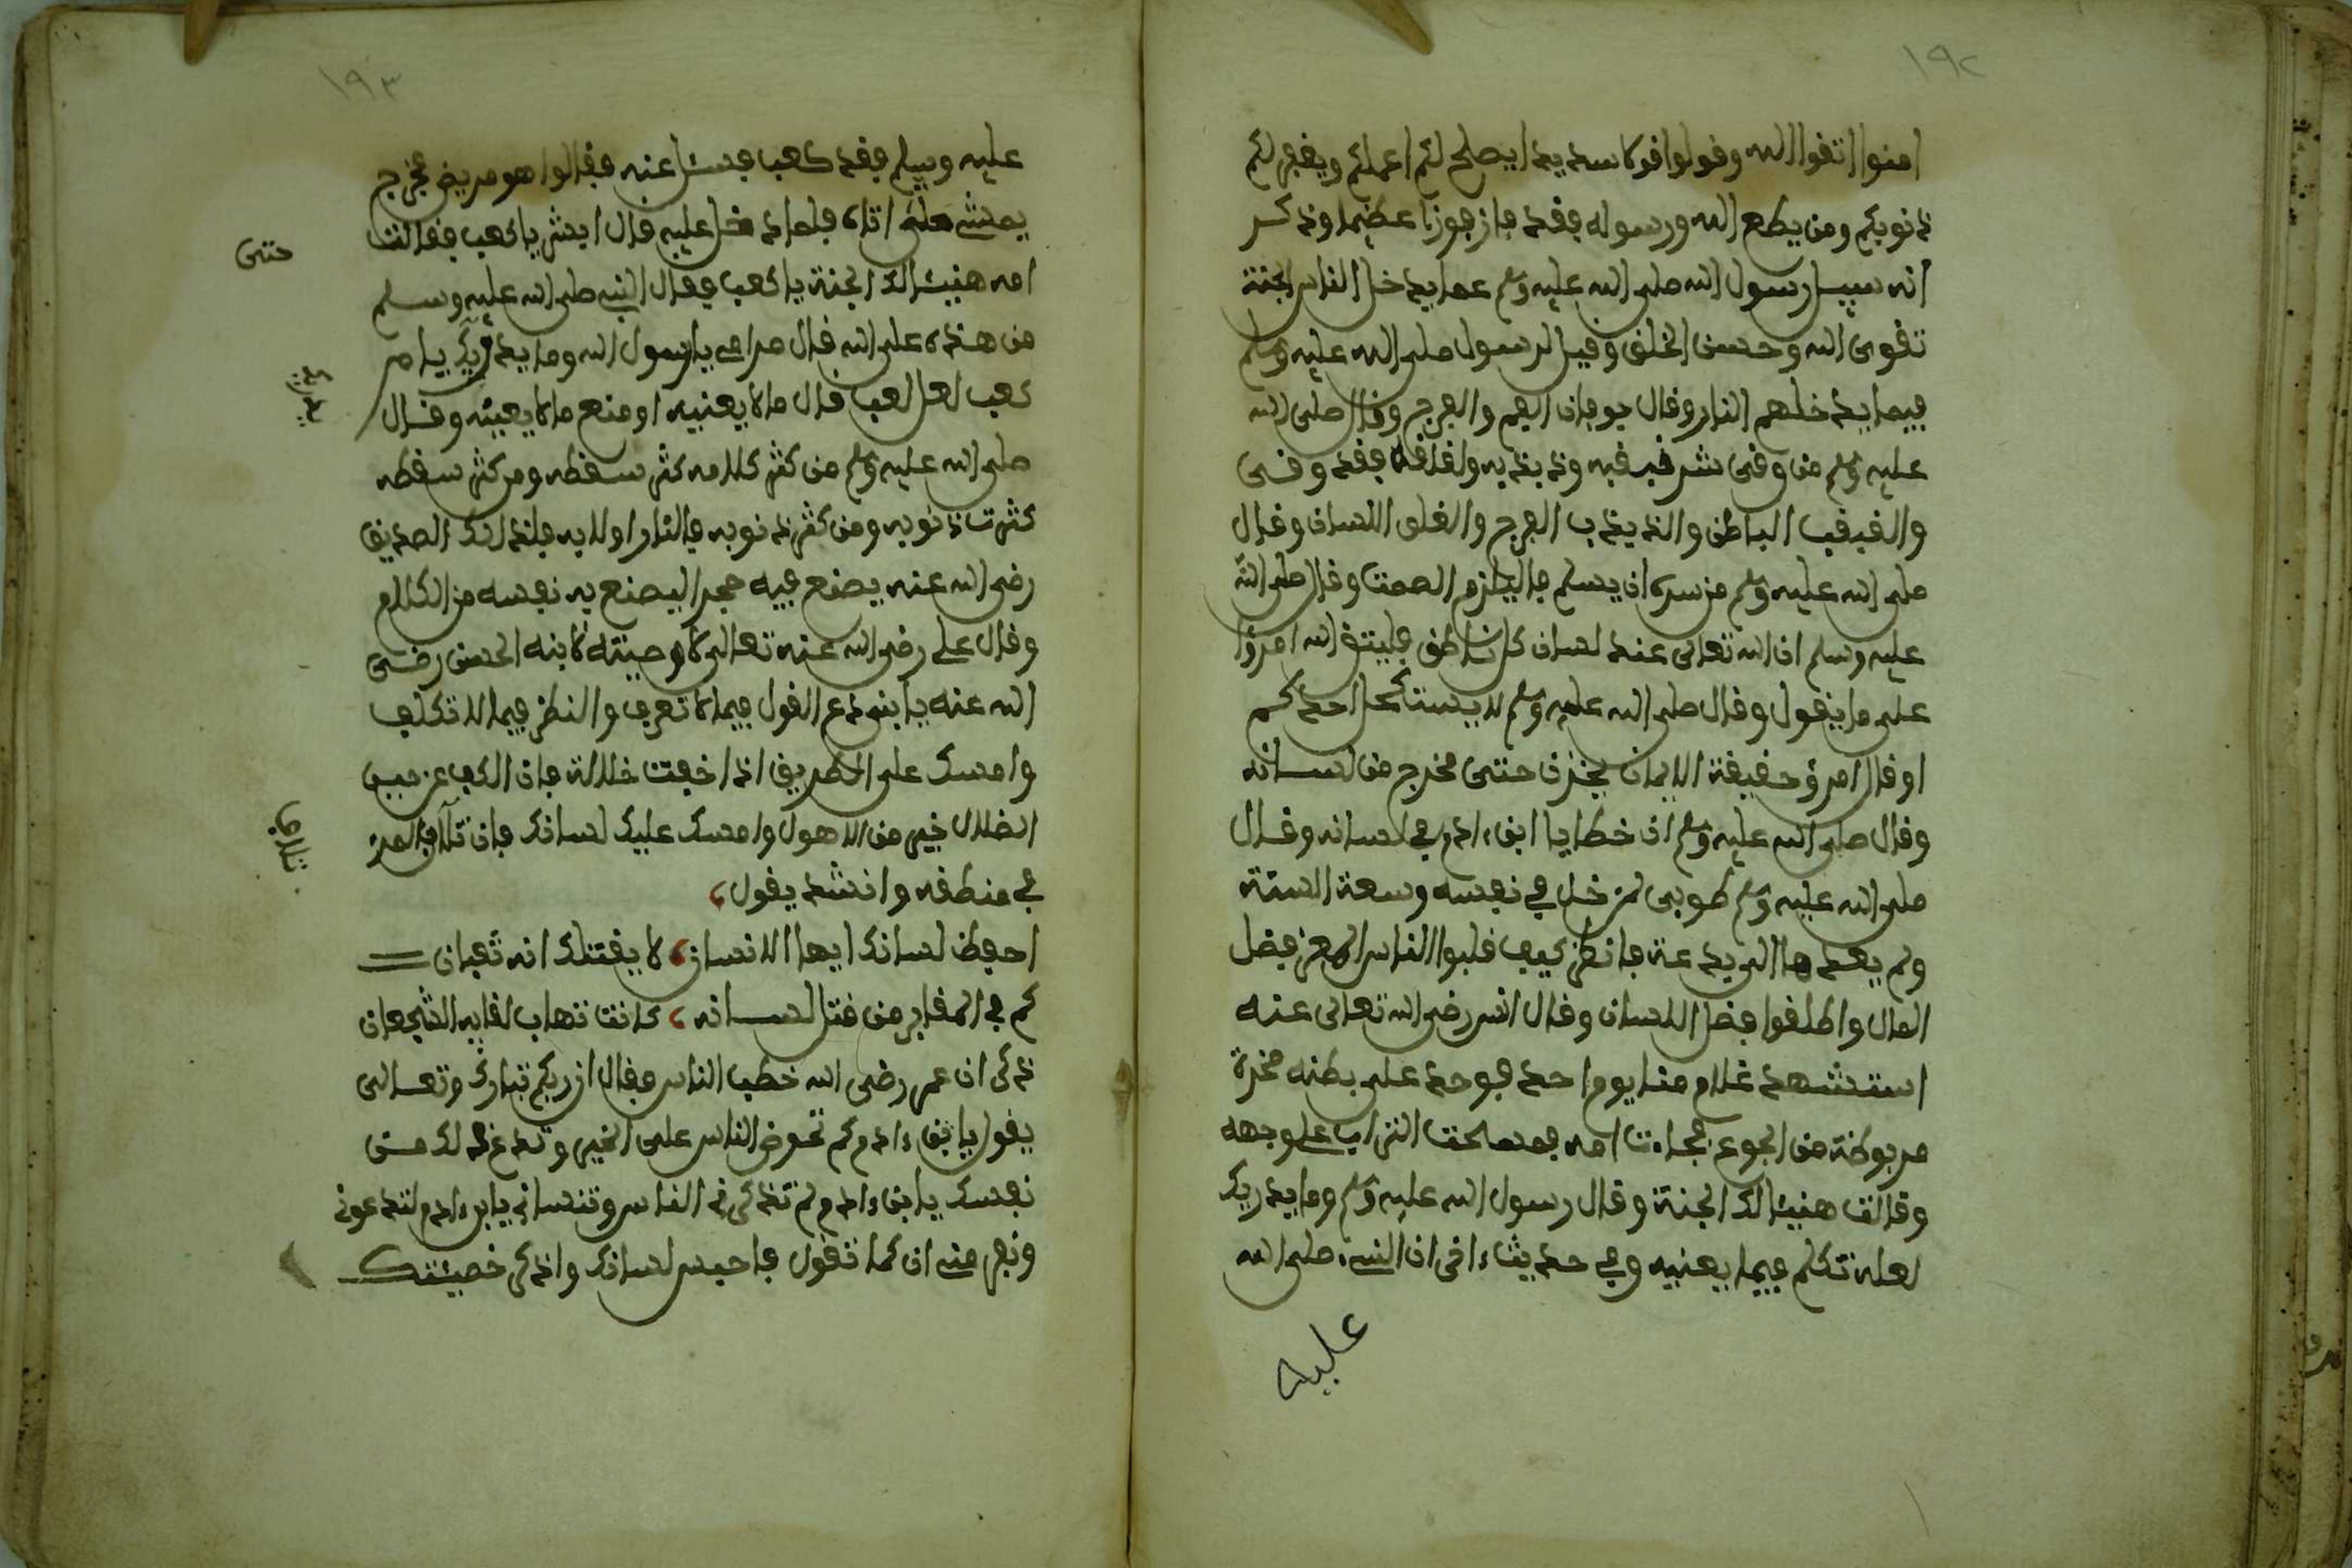 ١٩٢
امنوا اتقوا الله وقولوا قولا سديدا يصلح لكم اعملكم ويغفر لكم
ذنوبكم ومن يطع الله ورسوله فقد فاز فوزا عظيما وذكر
انه سيل رسول الله صلى الله عليه وسلم عما يدخل الناس الجنة
تقوى الله وحسن الخلق وقيل لرسول صلى الله عليه وسلم
فيما يدخلهم النار وقال جوفان الفم والفرج وقال صلى الله
عليه وسلم من وقى شر قبقبه وذبذبه ولقلقه فقد وقى
والقبقب الباطن والذبذب الفرج والقلق اللسان وقال
صلى الله عليه وسلم من سره ان يسلم فاليلزم الصمت وقال صلى الله
عليه وسلم ان الله تعالى عند لسان كل ناطق فليتق الله امرؤا
على ما يقول وقال صلى الله عليه وسلم لا يستكمل احدكم
او قال امرؤ حقيقة الايمان يخزن حتى مخرج من لسانه
وقال صلى الله عليه وسلم ان خطايا ابن ءادم في لسانه وقال
صلى الله عليه وسلم طوبى لمن خل في نفسه وسعة السنة
ولم يعدها الى بدعة فانظر كيف قلبوا الناس الامر فضل
المال واطلقوا فضل اللسان وقال انس رضي الله تعالى عنه
استشهد غلام منا يوم احد فوجد على بطنه صخرة
مربوطة من الجوع فجاءت امه فمسحت التراب على وجهه
وقالت هنيئا لك الجنة وقال رسول الله عليه وسلم وما يدريك
لعله تكلم فيما يعنيه وفي حديث ءاخر ان النبيء صلى الله
عليه
١٩٣
عليه وسلم فقد كعب فسئل عنه فقالوا هو مريض فخرج
يمشي حتى اتاه فلما دخل عليه قال ابشر يا كعب فقالت
حتى
امه هنيئا لك الجنة يا كعب فقال النبي صلى الله عليه وسلم
من هذه على الله قال هي امي يا رسول الله وما يدريك يا ام
كعب لعل كعب قال ما لا يعنيه او منع ما لا يعنيه وقال
صلى الله عليه وسلم من كثر كلامه كثر سقطه ومن كثر سقطه
كثرت ذنوبه ومن كثر ذنوبه فالنار اولا به فلذلك الصديق
رضي الله عنه يصنع فيه حجرا ليصنع به نفسه من الكلام
وقال علي رضي الله عنه تعالى في وصيته لابنه الحسن رضي
الله عنه يا بني دع القول فيما لا تعرف والنظر فيما لا تكلف
وامسك على الطريق اذا خفت ضلالة فان الكف عن حين
الضلال خير من الاهوال وامسك عليك لسانك فان تلاف المرء
تلاف
في منطقه وانشد يقول
احفظ لسانك ايها الانسان لا يقتلك انه ثعبان
كم في المقابر من قتل لسانه كانت تهاب لقايه الشجعان
ذكر ان عمر رضي الله خطب الناس فقال ان ربكم تبارك وتعالى
يقول يا ابن ءادم لم تحرض الناس على الخير وتدع ذلك من
نفسك يا ابن ءادم لم تذكر في الناس وتنساني يا ابن ءادم لم تدعوني
وتفر مني ان كما تقول فاحبس لسانك واذكر خصيئتك